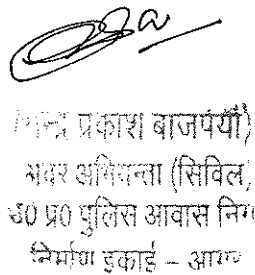 प्रकाश बाजपेयी)
अवर अभियन्ता (सिविल,
उ0 प्र0 पुलिस आवास निग
निर्माण इकाई – आग